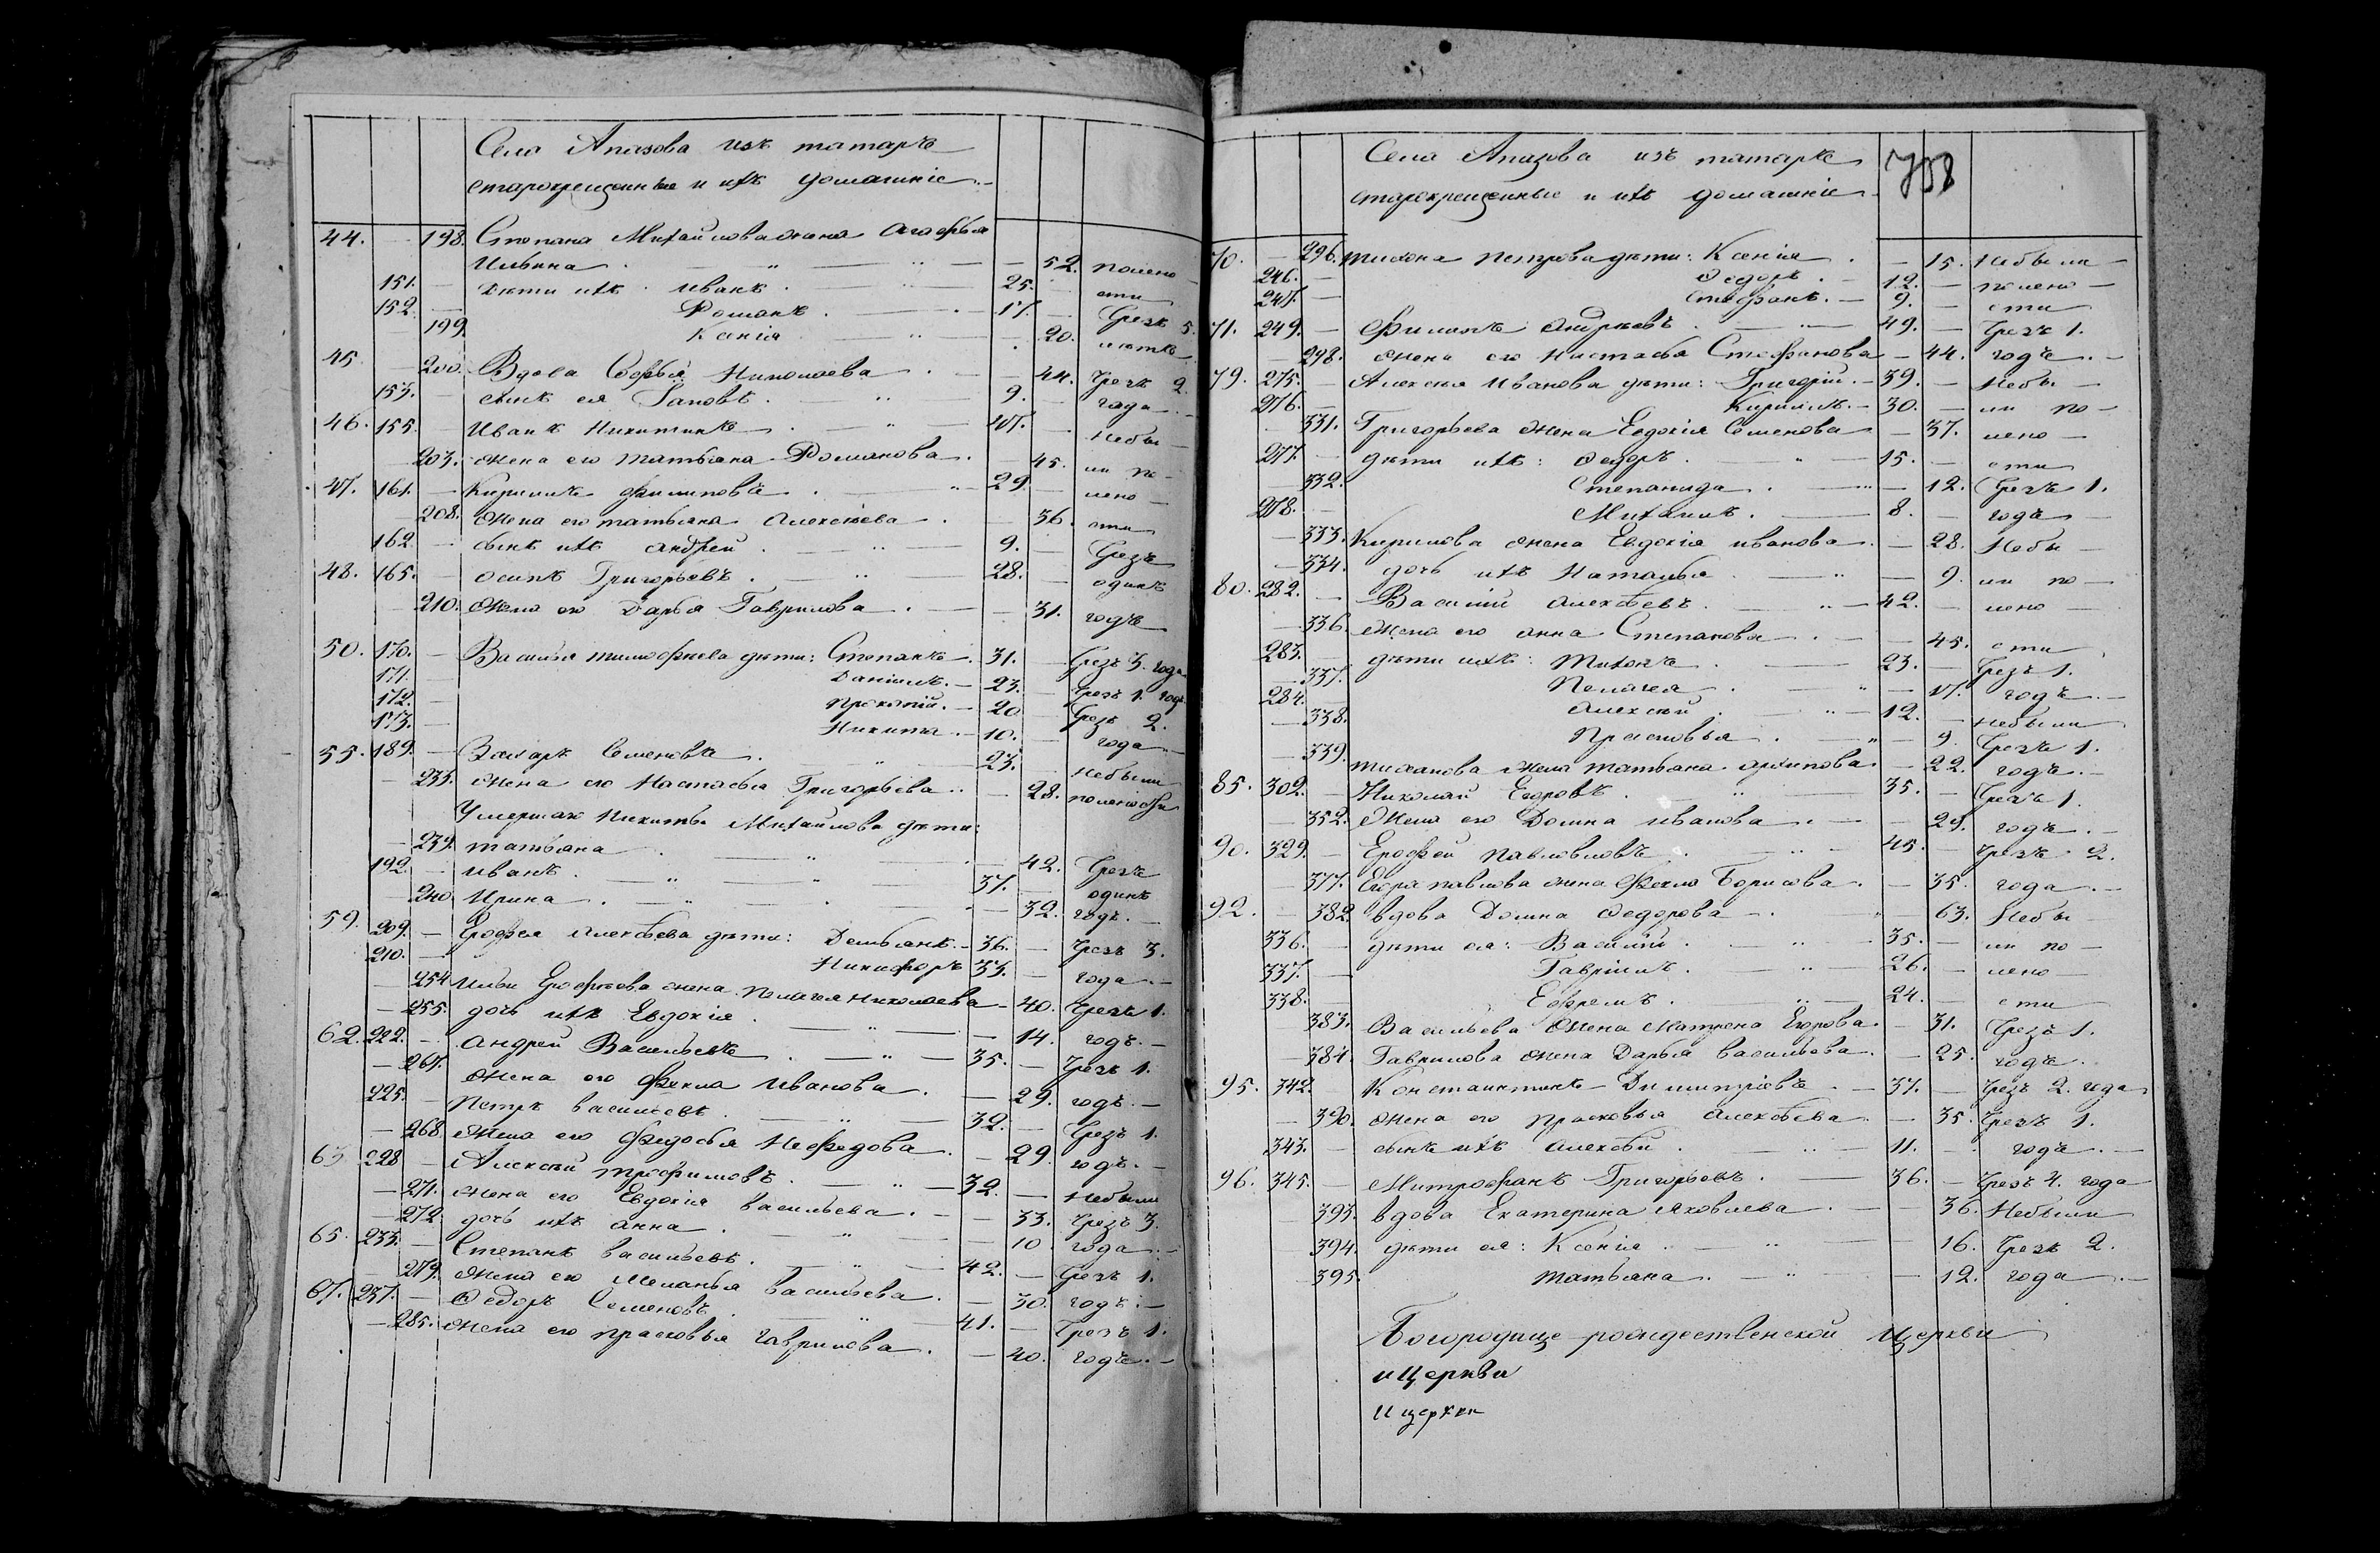 Села Апазова изъ татаръ
старокрещенные и ихъ домашніе
44. — 198. Степана Михайлова жена Агафья
Ильина — 52. полено
151. — Дѣти ихъ: Иванъ. 25. — сти
152. — Романъ. — 17. — Чрезъ 5.
199. Ксенія — 20. лѣтъ
45 200. Вдова Софья Николаева. — 44. Чрезъ 2.
153. — сынъ ея 9. — года
46. 155. Иванъ Никитинъ — 47. — Небы
— 203. жена его Татьяна Романова. — 45. ли по
47. 161. — Кирилъ Филиповъ. 29. — лено
— 208. жена его Татьяна Алексѣева. — 36. сти
162. — сынъ ихъ Андрей. — 9. Чрезъ
48. 165. — Осипъ Григорьевъ. — 28. — одинъ
— 210. Жена его Дарья Гаврилова. — 31. годъ
50. 170. — Василья Тимофѣева дѣти: Степанъ. 31. — Чрезъ 3. года
171. — Даніилъ. — 23. — Чрезъ 1. годъ
172. — Прокопій. — 20 — Чрезъ 2.
173. — Никита. — 10. — года
55. 189. — Захаръ Семеновъ. 23. — Небыли
— 235. жена его Настасья Григорьева. — 28. полености
Умершаго Никиты Михайлова дѣти:
— 239. Татьяна — 42. Чрезъ
192. — Иванъ. — 37. — одинъ
— 240. Ирина. — 32. годъ. —
59. 209. — Ерофея Алексѣева дѣти: Демьянъ. — 36. — Чрезъ 3.
210. — Никифоръ 33. — года. —
— 254 Ильи Ерофѣева жена Пелагея Николаева — 40. Чрезъ 1.
— 255. дочь ихъ Евдокія. — 14. годъ. —
62. 222. — Андрей Васильевъ. — 35. — Чрезъ 1.
— 267. жена его Фекла Иванова. — 29. годъ. —
225. — Петръ Васильевъ. — 32. — Чрезъ 1.
— 268. Жена его Федосья Нефедова. — 29. годъ. —
63 228 — Алексѣй Трофимовъ. — 32. — Небыли
— 271. жена его Евдокія Васильева. — 33. Чрезъ 3.
— 272. дочь ихъ Анна. — 10. года. —
65. 235. — Степанъ Васильевъ. — 42. — Чрезъ 1.
— 279. Жена его Меланья Васильева. — 30. годъ. —
67. 237. — Федоръ Семеновъ. — 41. — Чрезъ 1.
— 285. Жена его Прасковья Гаврилова. — 40. годъ. —
758
Села Апазова изъ татаръ
старокрещенные и ихъ домашніе
70. — 296. Тихона Петрова дѣти: Ксенія. — 15. Небыли —
246. — Федоръ. — 12. — полено —
247. — Стефанъ. — 9. — сти
71. 249. — Филипъ Андреевъ. — 49. — Чрезъ 1.
— 298. жена его Настасья Стефанова — 44. годъ. —
79. 275. — Алексѣя Иванова дѣти: Григорій. — 39. — Небы —
276. — Кирилъ. — 30. — ли по —
— 331. Григорьева жена Евдокія Семенова — 37. лено —
277. — дѣти ихъ: Федоръ. — 15. — сти
— 332. Степанида. — 12. Чрезъ 1.
278. — Михаилъ. — 8. — годъ —
— 333. Кирилова жена Евдокія Иванова. — 28. Небы —
— 334. дочь ихъ Наталья — 9. ли по —
80. 282. — Василій Алексѣевъ. — 42. — лено —
— 336. Жена его Анна Степанова. — 45. сти
283. — дѣти ихъ: Тихонъ. — 23. — Чрезъ 1.
— 337. Пелагея. — 17. годъ. —
284. — Алексѣй. — 12. — Небыли
— 338. Прасковья. — 9. Чрезъ 1.
— 339. Тиханова жена Татьяна Архипова — 22. годъ. —
85. 302. — Николай Егоровъ. — 35. — Чрезъ 1.
— 352. Жена его Домна Иванова. — 29. годъ. —
90. 329. — Ерофей Павловъ. — 45. — Чрезъ 2.
— 377. Егора Павлова жена Фекла Борисова. — 35. года. —
92. — 382. Вдова Домна Федорова —. — 63. Небы —
336. — дѣти ея: Василій. — 35. — ли по —
337. — Гавріилъ. — 26. — лено —
338. — Ефремъ. — 24. — сти
— 383. Васильева жена Матрена Егорова. — 31. Чрезъ 1.
— 384. Гаврилова жена Дарья Васильева. — 25. годъ.
95. 342. Константинъ Димитріевъ. — 37. — Чрезъ 2. года
— 390. жена его Прасковья Алексѣева. — 35. Чрезъ 1.
343. — сынъ ихъ Алексѣй. — 11. — годъ. —
96. 345. — Митрофанъ Григорьевъ. — 36. — Чрезъ 4. года
— 393. вдова Екатерина Яковлева. — 36. Небыли
— 394. дѣти ея: Ксенія. — 16. Чрезъ 2.
— 395. Татьяна. — 12. года. —
Богородице-рождественской церкви
и церкви
и церкви